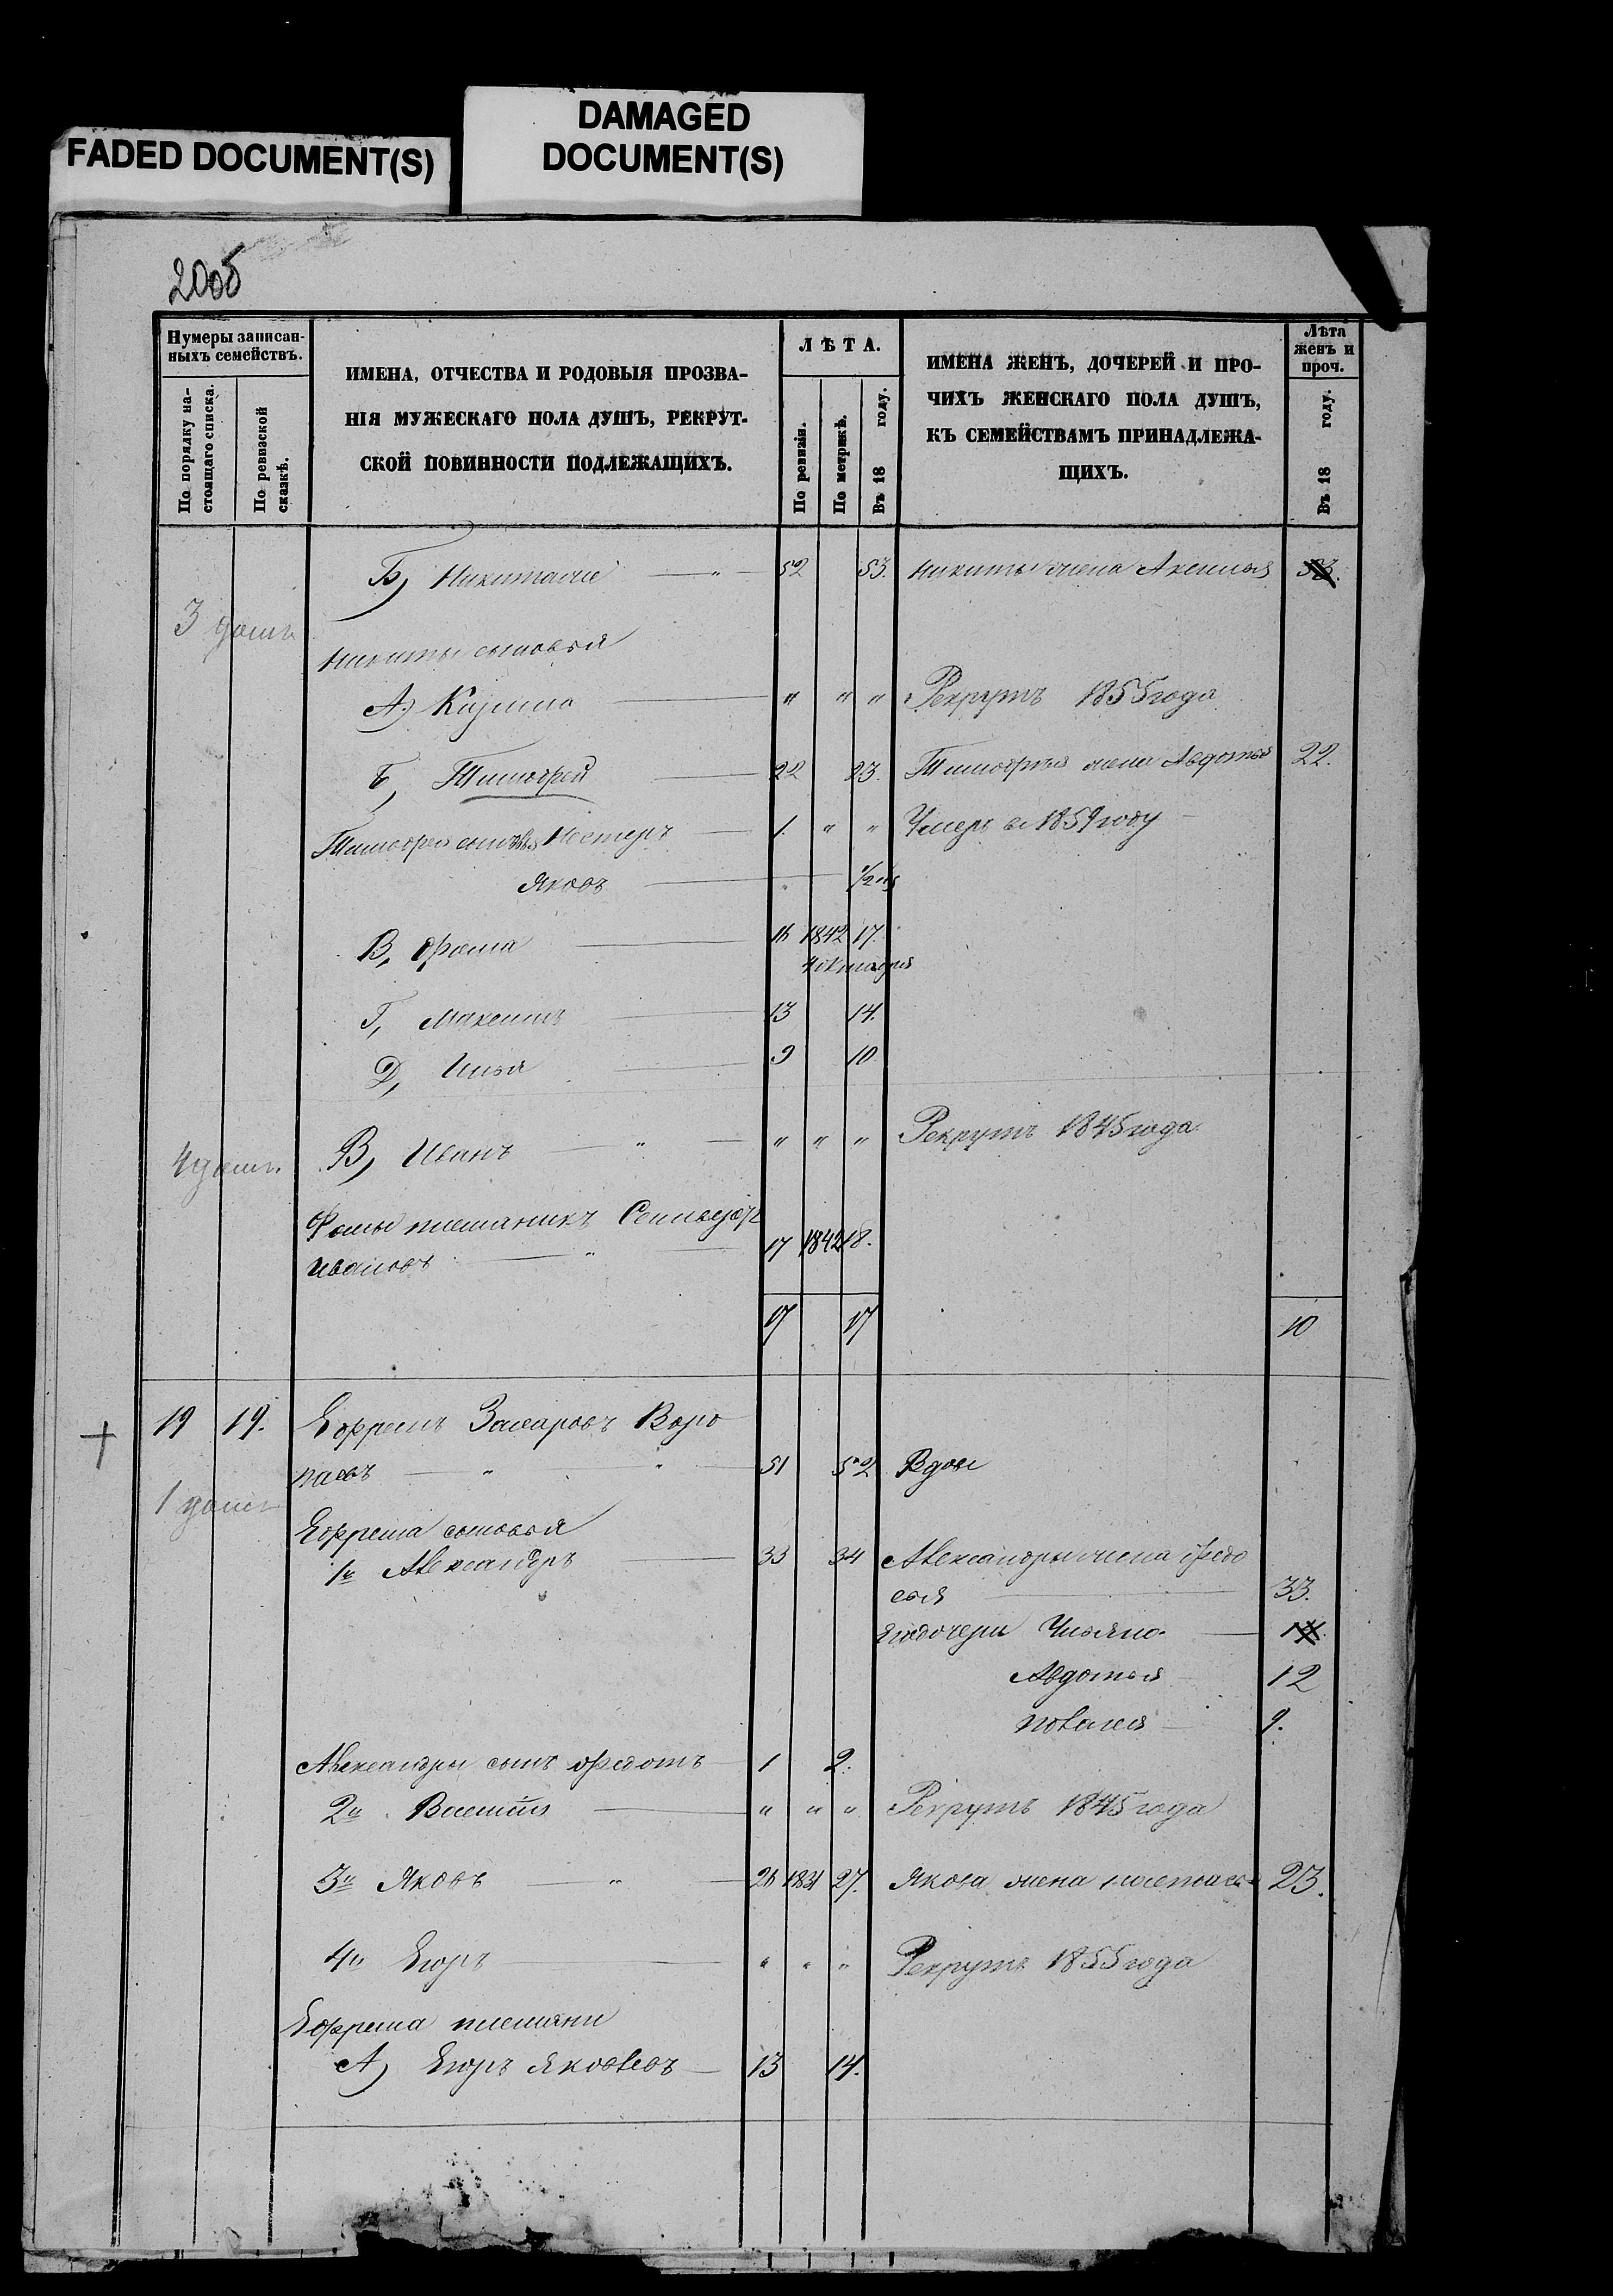 FADED DOCUMENT(S)
DAMAGED
DOCUMENT(S)
200б
Нумеры записан-
ныхъ семействъ.
По порядку на-
стоящаго списка.
По ревизской
сказкѣ.
ИМЕНА, ОТЧЕСТВА И РОДОВЫЯ ПРОЗВА-
НІЯ МУЖЕСКАГО ПОЛА ДУШЪ, РЕКРУТ-
СКОЙ ПОВИННОСТИ ПОДЛЕЖАЩИХЪ.
ЛѢТА.
По ревизіи.
По метрикѣ.
Въ 18 году.
ИМЕНА ЖЕНЪ, ДОЧЕРЕЙ И ПРО-
ЧИХЪ ЖЕНСКАГО ПОЛА ДУШЪ,
КЪ СЕМЕЙСТВАМЪ ПРИНАДЛЕЖА-
ЩИХЪ.
Лѣта
женъ и
проч.
Въ 18 году.
Б, 52 53. Никиты жена Аксинья 53.
3
Никиты сыновья
А) " " " Рекрутъ 1855 года
Б, Тимофей 22 23. Тимофея жена Авдотья 22.
Нестеръ 1. " " Умеръ въ 1859 году
Яковъ 1/2
В, Фома 16 1842 17.
4 октября
Г, Максимъ 13 14.
Д, Илья 9 10
4 В, Иванъ " " " " Рекрутъ 1845 года
Фомы племяникъ
Ивановъ " 17 1842 18.
17 17 10
19 19. Ефремъ Захаровъ Воро
паевъ " " 51 52 Вдов
1
Ефрема сыновья
1й Александръ 33 34 Александры жена Федо
сья 33.
Ихъ дочери Ульяна
Авдотья 12
9.
Александры сынъ Федотъ 1 2.
2й " " " Рекрутъ 1845 года
3й Яковъ " 26 1831 27. Якова жена Настась 23.
4й Егоръ " " " Рекрутъ 1855 года
Ефрема племяни
А) Егоръ Яковлевъ 13 14.